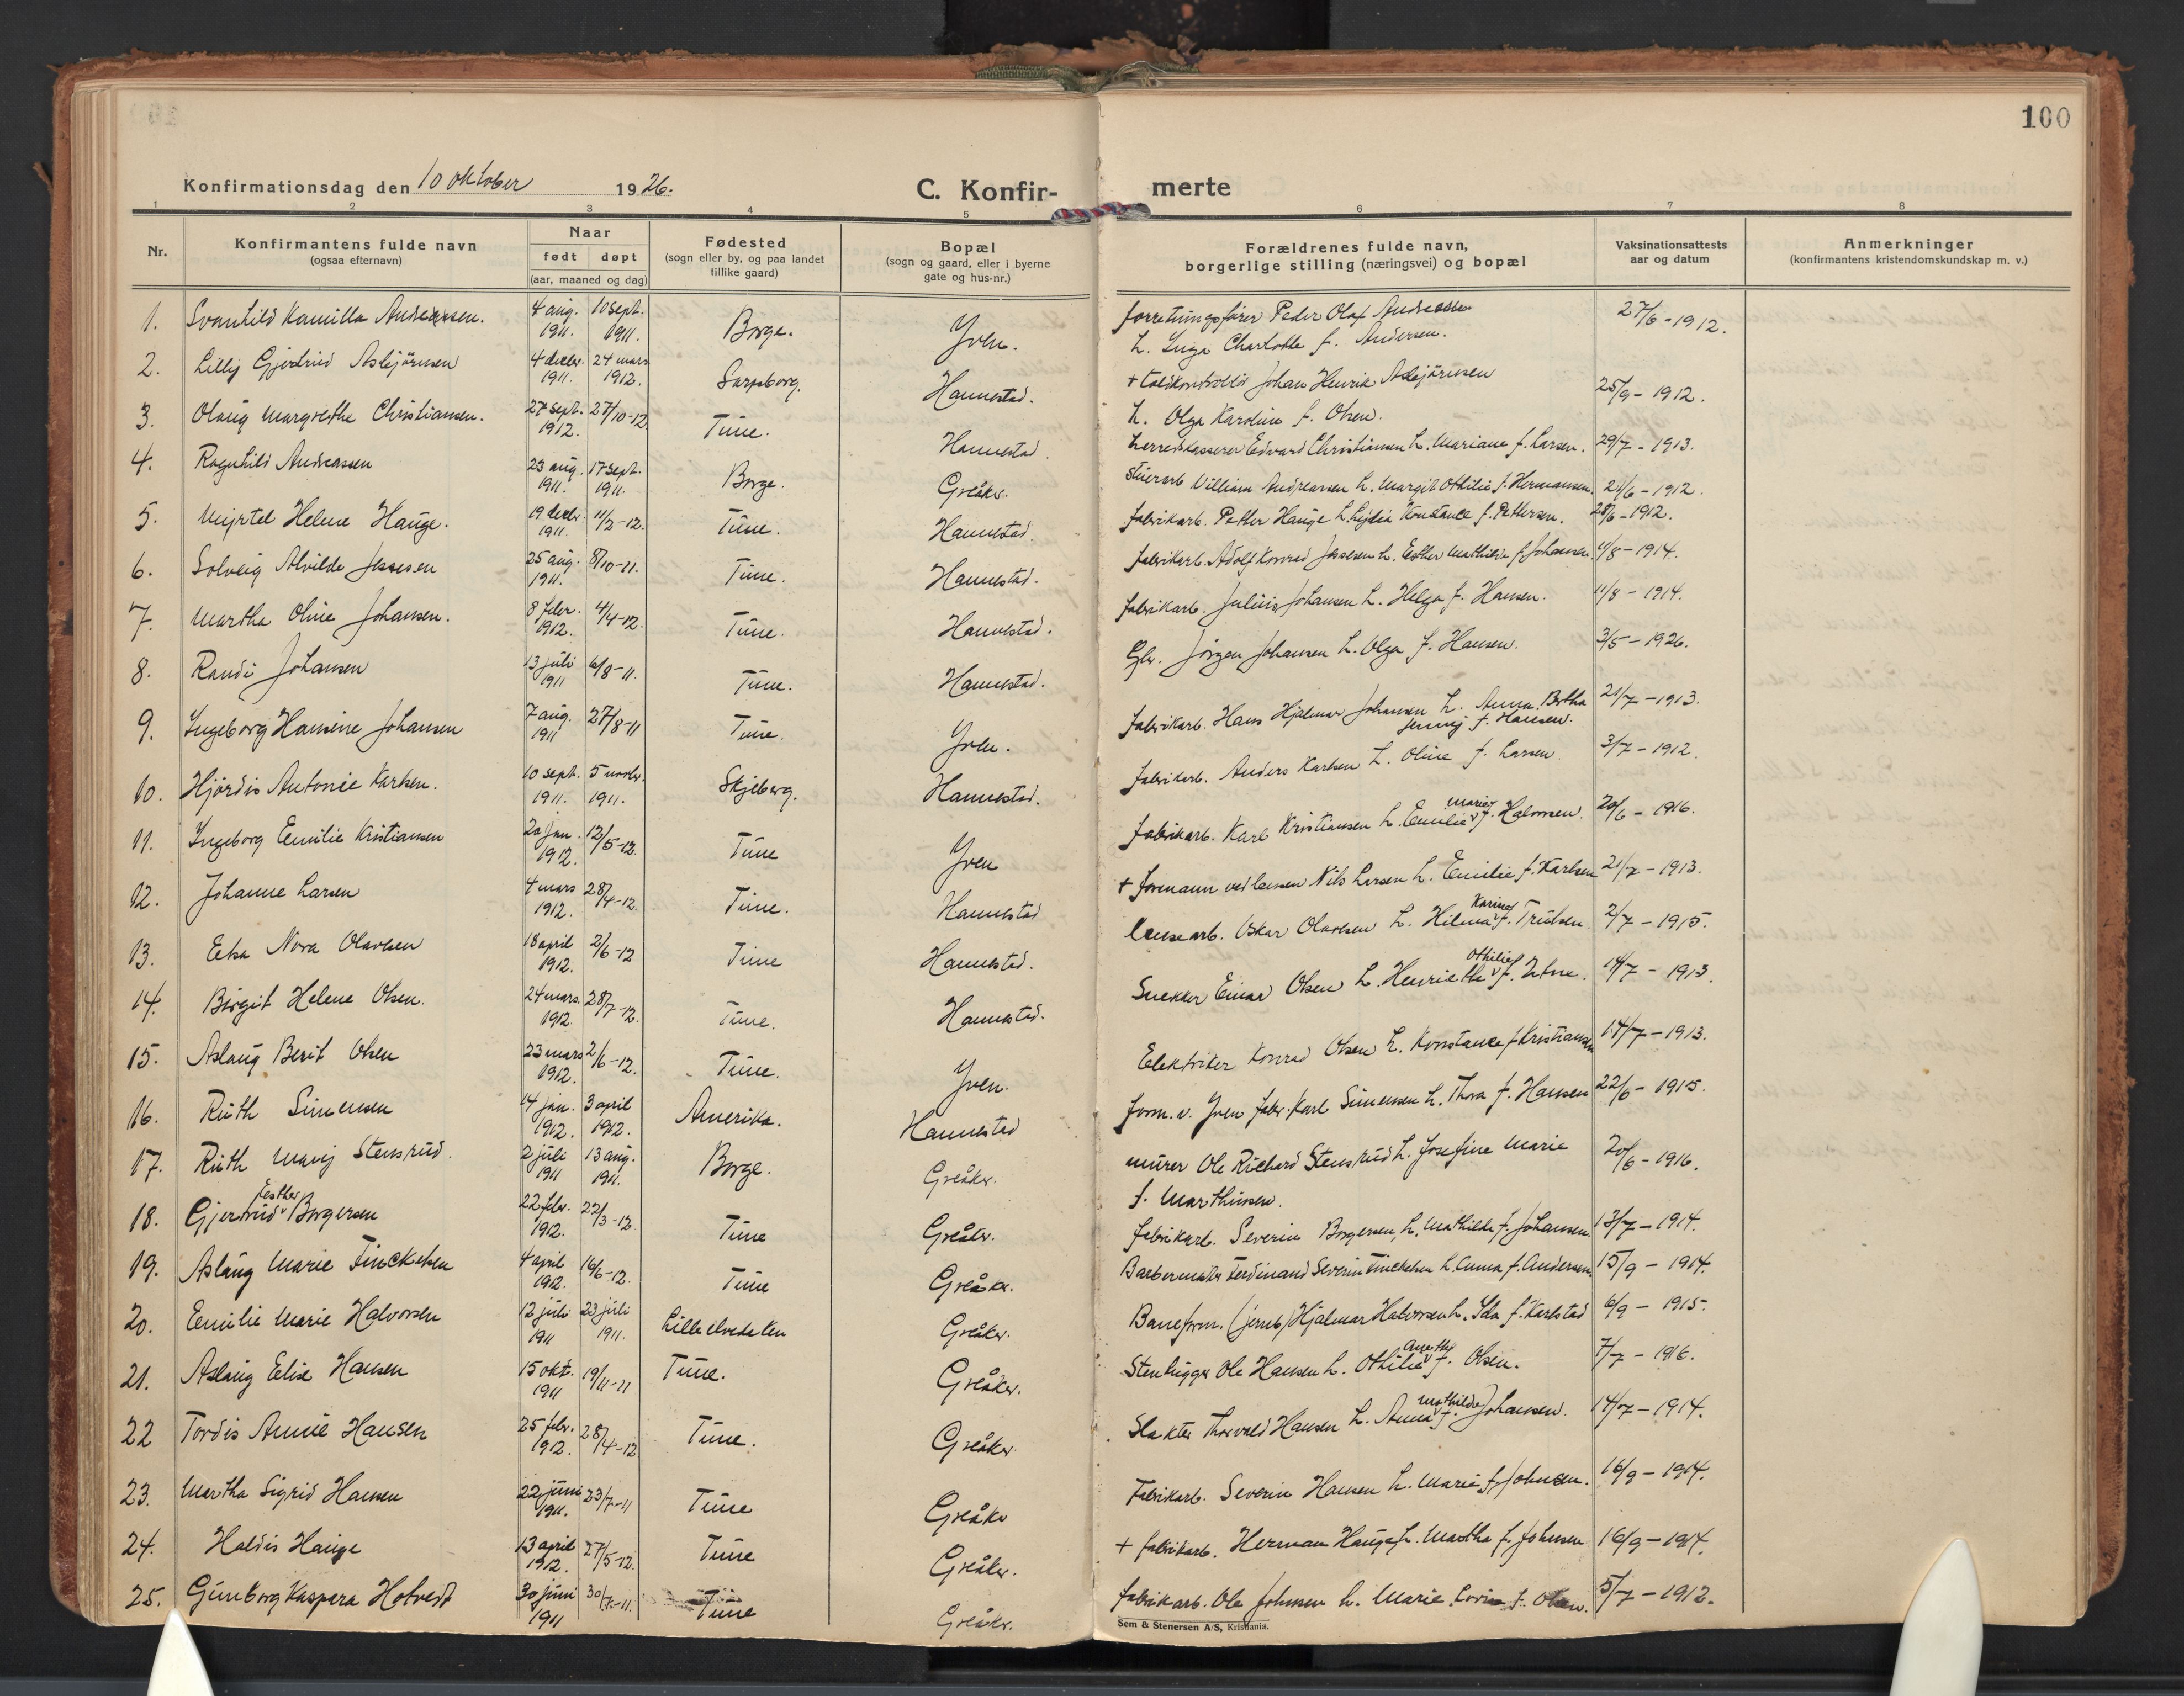 100
Konfirmationsdag den 10 oktober 1926.
C. Konfir- merte
1 2 3 4 5 6 7 8
Nr.
Konfirmantens fulde navn
(ogsaa efternavn)
Naar
født døpt
(aar, maaned og dag)
Fødested
(sogn eller by, og paa landet
tillike gaard)
Bopæl
(sogn og gaard, eller i byerne
gate og hus-nr.)
Forældrenes fulde navn,
borgerlige stilling (næringsvei) og bopæl
Vaksinationsattests
aar og datum
Anmerkninger
(konfirmantens kristendomskundskap m. v.)
1. Svanhild Kamilla Andreassen. 4 aug. 1911. 10 sept. 1911. Borge. Yven. forretningsfører Peder Olaf Andreassen 27/6-1912.
h. Inga Charlotte f. Andersen.
2. Lilly Gjertrud Asbjörnsen 4 decbr. 1911. 24 mars 1912. Sarpsborg. Hannestad. + toldkontrollör Johan Henrik Asbjörnsen 25/9-1912.
h. Olga Karoline f. Olsen.
3. Olaug Margrethe Christiansen. 27 sept. 1912. 27/10-12. Tune. Hannestad. herredskasserer Edvard Christiansen h. Mariane f. Larsen. 29/7-1913.
4. Ragnhild Andreassen 23 aug. 1911. 17 sept. 1911. Borge. Greåker. William Andreassen h. Margit Othilie f. Hermansen. 21/6-1912.
5. Myrtel Helene Hauge. 19 decbr. 1911. 11/2-12. Tune. Hannestad. fabrikarb. Petter Hauge h. Lydia Konstance f. Pettersen. 28/6-1912.
6. Solveig Alvilde Jessesen 25 aug. 1911. 8/10-11. Tune. Hannestad. fabrikarb. Adolf Konrad Jessesen h. Esther Mathilde f. Johansen. 11/8-1914.
7. Martha Oline Johansen. 8 febr. 1912. 4/4-12. Tune. Hannestad. fabrikarb. Julius Johansen h. Helga f. Hansen. 11/8-1914.
8. Randi Johansen 13 juli 1911 6/8-11. Tune. Hannestad. Gbr. Jörgen Johansen h. Olga f. Hansen. 3/5-1926.
9. Ingeborg Hansine Johansen 7 aug. 1911 27/8-11 Tune. Yven. fabrikarb. Hans Hjalmar Johansen h. Anna Bertha 21/7-1913.
Jenny f. Hansen.
10. Hjördis Antonie Karlsen. 10 sept. 1911. 5 novbr. 1911. Skjeberg. Hannestad. fabrikarb. Anders Karlsen h. Oline f. Larsen. 3/7-1912.
11. Ingeborg Emilie Kristiansen 20 jan. 1912. 12/5-12. Tune Yven fabrikarb. Karl Kristiansen h. Emilie Marie f. Halvorsen. 20/6-1916.
12. Johanne Larsen 4 mars 1912. 28/4-12. Tune. Hannestad + formann ved lensen Nils Larsen h. Emilie f. Karlsen 21/7-1913.
13. Elsa Nora Olavesen 18 april 1912. 2/6-12 Tune Hannestad. lensearb. Oskar Olavesen h. Hilma Karine f. Trulsen. 2/7-1915.
14. Birgit Helene Olsen. 24 mars. 1912. 28/7-12. Tune. Hannestad. Snekker Einar Olsen h. Henriette Othilie f. 14/7-1913.
15. Aslaug Berit Olsen 23 mars 1912. 2/6-12. Tune. Yven. Elektriker Konrad Olsen h. Konstance f. Kristiansen 14/7-1913.
16. Ruth Simensen 14 jan. 1912. 3 april 1912. Amerika. Hannestad form. v. Yven fabr. Karl Simensen h. Thora f. Hansen 22/6-1915.
17. Ruth Mary Stensrud. 2 juli 1911 13 aug. 1911. Borge. Greåker. murer Ole Richard Stensrud h. Josefine Marie 20/6-1916.
f. Marthinsen.
18. Gjertrud Esther Borgersen 22 febr. 1912. 22/3-12. Tune Greåker. fabrikarb. Severin Borgersen, h. Mathilde f. Johansen. 13/7-1914.
19. Aslaug Marie Finckelsen 4 april 1912. 16/6-12. Tune Greåker. Barbermester Ferdinand Severin Finckelsen h. Anna f. Andersen. 15/9-1914.
20. Emilie Marie Halvorsen 12 juli 1911 23 juli 1911. Lille elvedalen Greåker. Baneform. (jernb.) Hjalmar Halvorsen h. Ida f. Karlstad 6/9-1915.
21. Aslaug Elise Hansen 15 okt. 1911 19/11-11 Tune. Greåker. Stenhugger Ole Hansen h. Othilie Anette f. Olsen. 7/7-1916.
22 Tordis Annie Hansen 25 febr. 1912. 28/4-12 Tune. Greåker. Slakter Thorvald Hansen h. Anna Mathilde f. Johansen. 14/7-1914.
23. Martha Sigrid Hansen 22 juni 1911. 23/7-11 Tune Greåker Fabrikarb. Severin Hansen h. Marie f. Johnsen. 16/9-1914.
24. Haldis Hauge 13 april 1912. 27/5-12. Tune Greåker. + fabrikarb. Herman Hauge h. Martha f. Johnsen 16/9-1914.
25. Gunborg Kaspara Holvedt 30 juni 1911 30/7-11. Tune Greåker. fabrikarb. Ole Johnsen h. Marie f. Olsen. 5/7-1912.
Sem & Stenersen A/S, Kristiania.